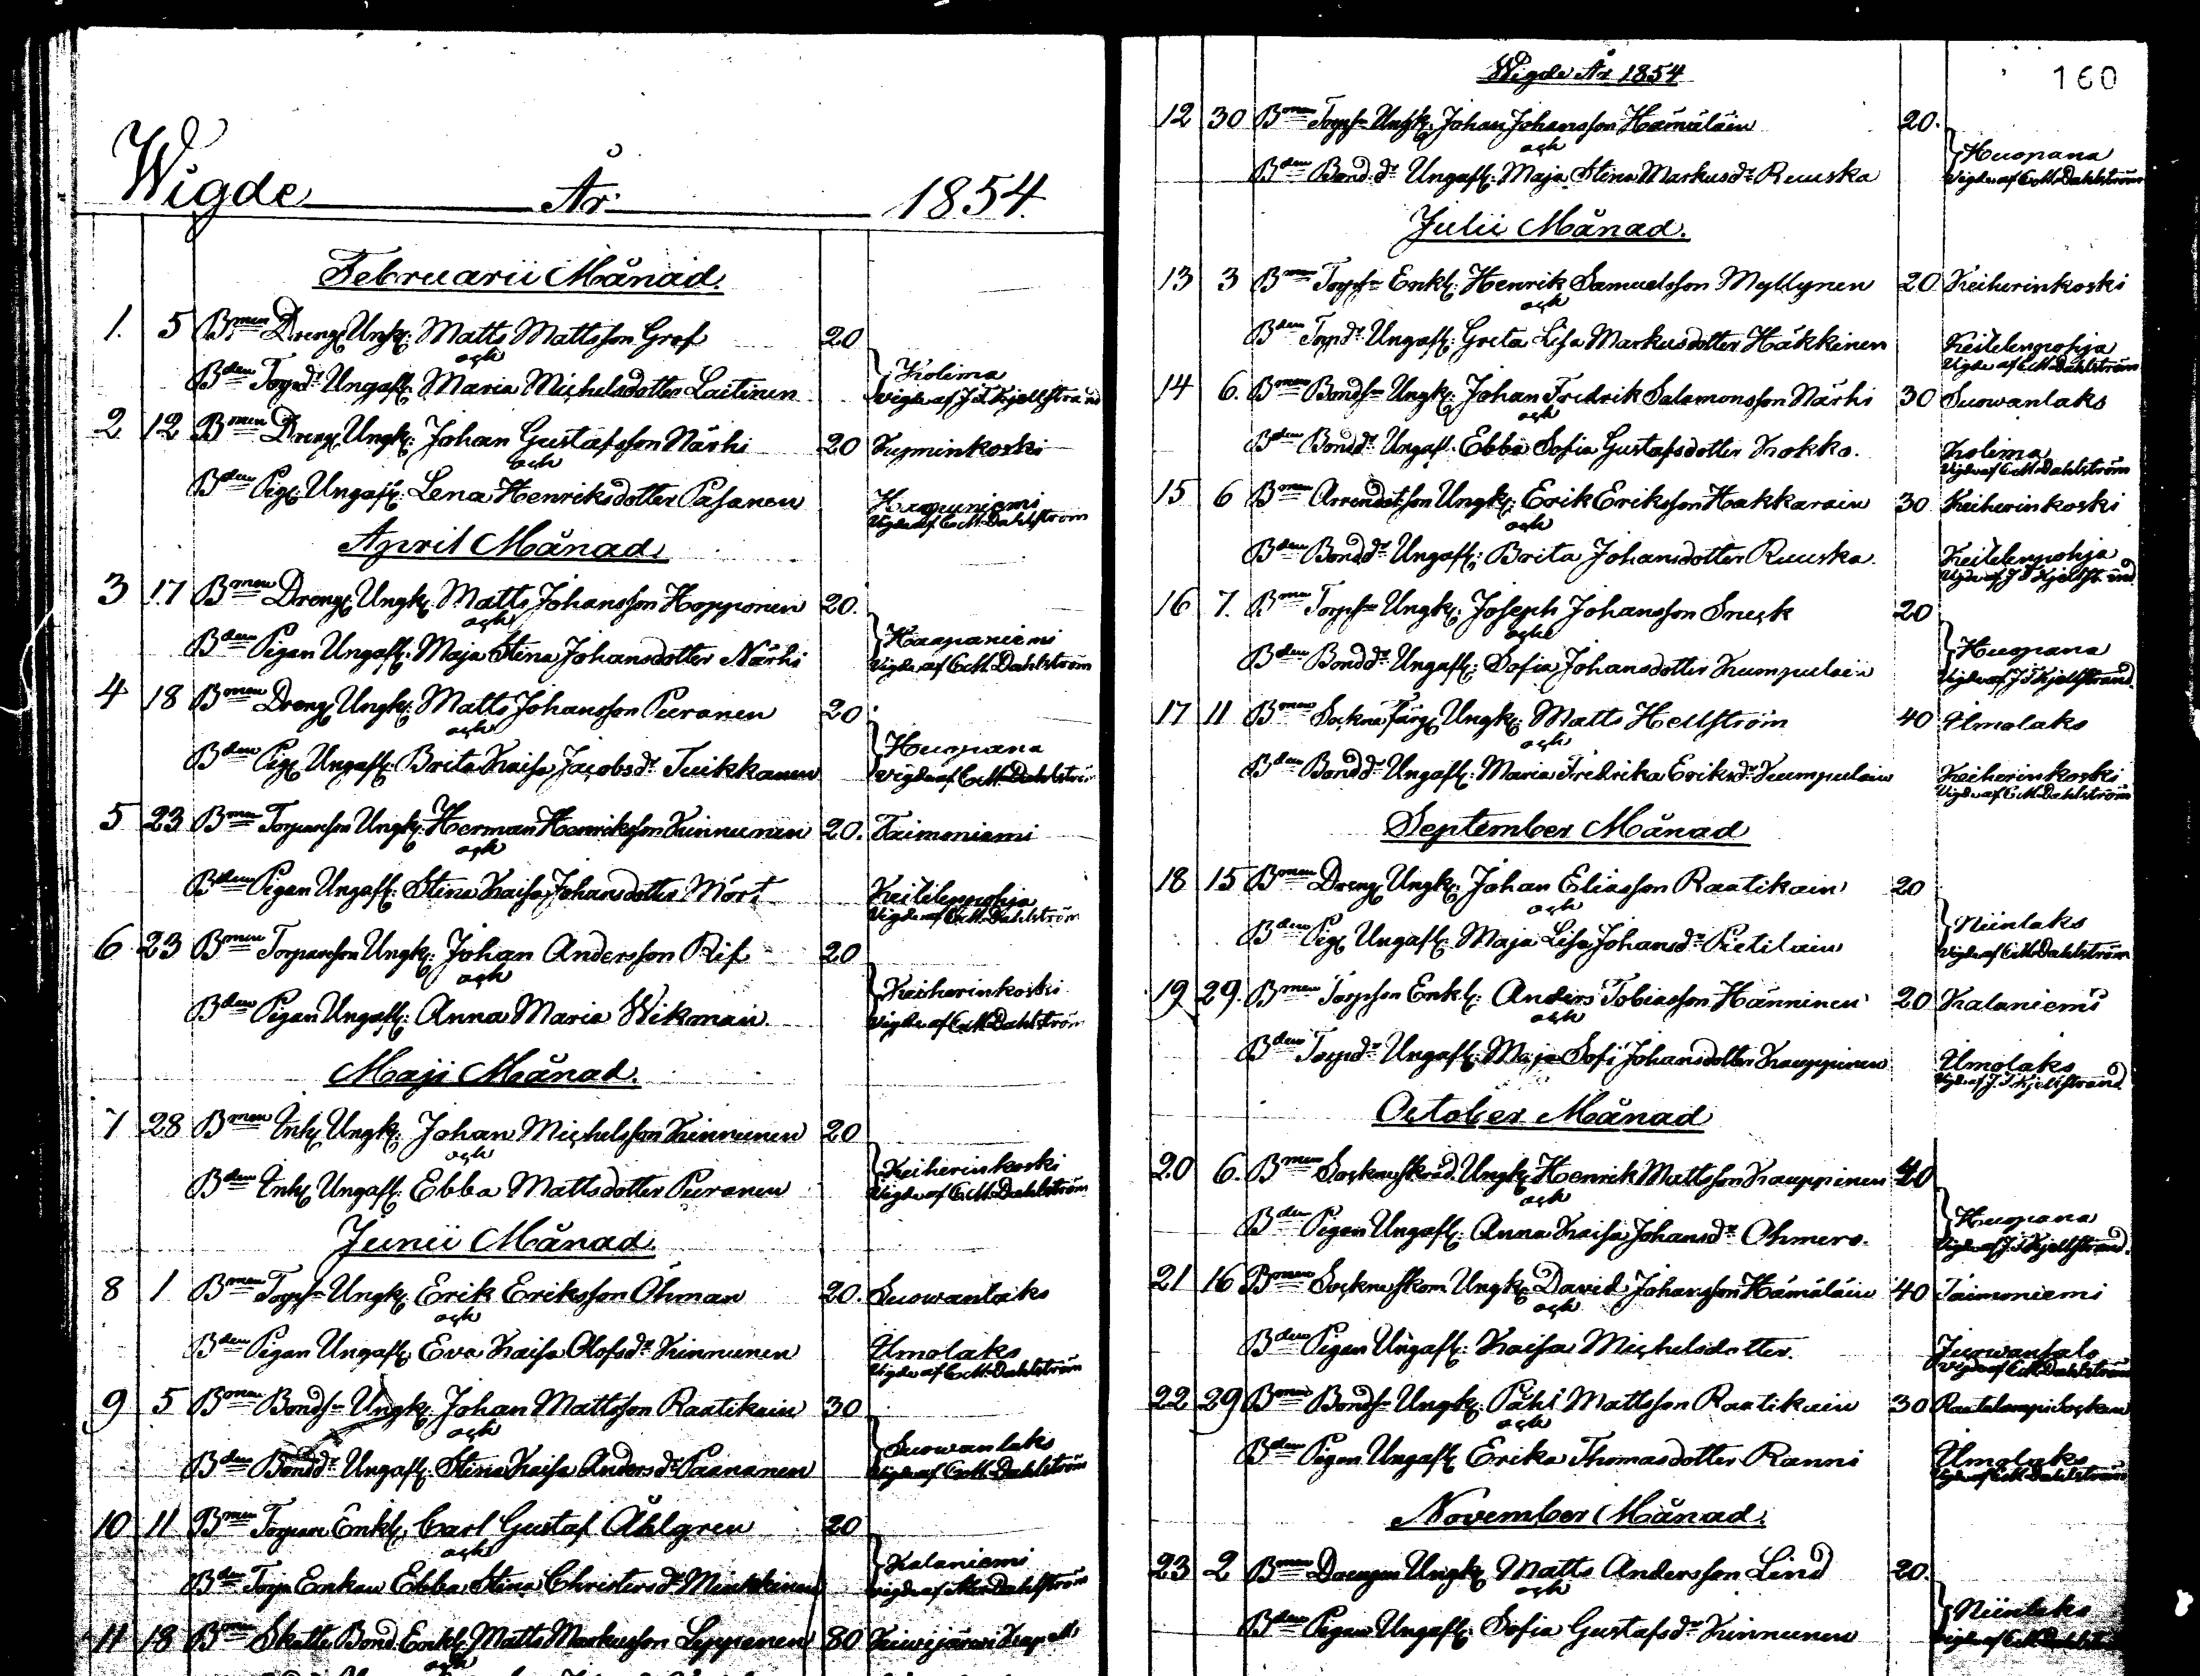 Wigde År 1854.
Februarii Månad.
1. 5 Bmen Dreng Ungk: Matts Mattsson Graf 20
och
Bden Torpdr Ungafl: Maria Michelsdotter Laitinen Kolima
Vigde af J. T. Kjellstrand
2 12 Bmen Dreng Ungk: Johan Gustafsson Närhi 20 Kuminkoski
och
Bden Pig: Ungafl: Lena Henriksdotter Pasanen Haapaniemi
Vigde af C. M. Dahlström
April Månad.
3 17 Bmen Dreng Ungk: Matts Johansson Hopponen 20.
och
Bden Pigan Ungafl: Maja Stina Johansdotter Närhi Haapaniemi
Vigde af C. M. Dahlström
4 18 Bmen Dreng Ungk: Matts Johansson Puranen 20
och
Bden Pig: Ungafl: Brita Kaisa Jacobsdr Tuikkanen Huopana
Vigde af C. M. Dahlström
5 23 Bmen Torpareson Ungk: Herman Henriksson Kinnunen 20. Taimoniemi
och
Bden Pigan Ungafl: Stina Kaisa Johansdotter Mört Keitelenpohja
Vigde af C. M. Dahlström
6 23 Bmen Torpareson Ungk: Johan Andersson Rif 20
och
Bden Pigan Ungafl: Anna Maria Wikman. Keiherinkoski
Vigde af C. M. Dahlström
Maji Månad.
7 28 Bmen Inh: Ungk: Johan Michelsson Kinnunen 20
och
Bden Inh: Ungafl: Ebba Mattsdotter Puranen Keiherinkoski
Vigde af C. M. Dahlström
Junii Månad.
8 1 Bmen Torpsn Ungk: Erik Eriksson Öhman 20. Suowanlaks
och
Bden Pigan Ungafl: Eva Kaisa Olofsdr Kinnunen Ümolaks
Vigde af C. M. Dahlström
9 5 Bmen Bondsn Ungk: Johan Mattsson Raatikain 30
och
Bden Bonddr Ungafl: Stina Kaisa Andersdr Paananen Suowanlaks
Vigde af C. M. Dahlström
10 11 Bmen Torpare Enkl: Carl Gustaf Åhlgren 20
och
Bden Torp Enkan Ebba Stina Christersdr Minkkinen Kalaniemi
Vigde af Dahlström
11 18 Bmen Skatte Bond Enkl: Matts Markusson Leppänen 80 Kiwijärwi Kapell
och
Wigde År 1854
160
12 30 Bmen Torpsn Ungk: Johan Johansson Hämäläin 20.
och
Bden Bond:dr Ungafl: Maja Stina Markusdr Ruuska Huopana
Vigde af C. M. Dahlström
Julii Månad.
13 3 Bmen Torpsn Enkl: Henrik Samuelsson Myllynen 20 Keiherinkoski
och
Bden Torpdr Ungafl: Greta Lisa Markusdotter Häkkinen Keitelenpohja
Vigde af C. M. Dahlström
14 6. Bmen Bondsn Ungk: Johan Fredrik Salomonsson Närhi 30 Suowanlaks
och
Bden Bonddr Ungafl: Ebba Sofia Gustafsdotter Kokko. Kolima
Vigde af C. M. Dahlström
15 6 Bmen Arrendat:son Ungk: Erik Eriksson Hakkarain 30 Keiherinkoski
och
Bden Bonddr Ungafl: Brita Johansdotter Ruuska. Keitelenpohja
Vigde af J. T. Kjellstrand
16 7. Bmen Torpsn Ungk: Joseph Johansson Sneck 20
och
Bden Bonddr Ungafl: Sofia Johansdotter Kumpulain Huopana
Vigde af J. T. Kjellstrand.
17 11 Bmen Sockne Färg: Ungk: Matts Hellström 40 Ümolaks
och
Bden Bonddr Ungafl: Maria Fredrika Eriksdr Kumpulain Keiherinkoski
Vigde af C. M. Dahlström
September Månad
18 15 Bmen Dreng Ungk: Johan Eliasson Raatikain 20
och
Bden Pig: Ungafl: Maja Lisa Johansdr Pietilain Niinlaks
Vigde af C. M. Dahlström
19 29. Bmen Torpson Enkl: Anders Tobiasson Hänninen 20 Kalaniemi
och
Bden Torpdr Ungafl: Maja Sofi Johansdotter Kauppinen Ümolaks
Vigde af J. T. Kjellstrand
October Månad
20 6. Bmen Sockneskräd. Ungk: Henrik Mattsson Kauppinen 40
och
Bden Pigan Ungafl: Anna Kaisa Johansdr Ohmero. Huopana
Vigde af J. T. Kjellstrand.
21 16 Bmen Sockneskom Ungk: David Johansson Hämäläin 40 Taimoniemi
och
Bden Pigan Ungafl: Kaisa Michelsdotter. Jurwansalo
Vigde af C. M. Dahlström
22 29 Bmen Bondsn Ungk: Påhl Mattsson Raatikain 30 Rautalampi Socken
och
Bden Pigan Ungafl: Erika Thomasdotter Ranni Ümolaks
Vigde af C. M. Dahlström
November Månad.
23 2 Bmen Drengen Ungk: Matts Andersson Lind 20.
och
Bden Pigan Ungafl: Sofia Gustafsdr Kinnunen Niinlaks
Vigde af C. M. Dahlström